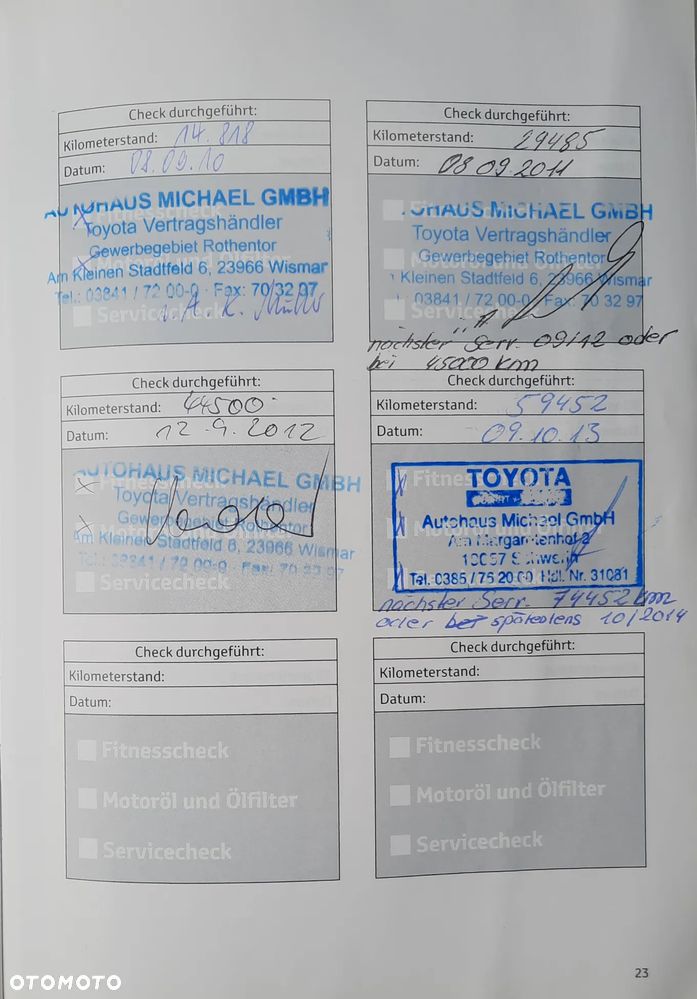 Check durchgeführt:
Kilometerstand: 14.818
Datum: 08.09.10
AUTOHAUS MICHAEL GMBH
Toyota Vertragshändler
Gewerbegebiet Rothentor
Am Kleinen Stadtfeld 6, 23966 Wismar
Tel.: 03841 / 72 00-0 · Fax: 70 32 97
Servicecheck
i. A. K.
Check durchgeführt:
Kilometerstand: 29485
Datum: 08.09.2011
UHAUS MICHAEL GMBH
Toyota Vertragshändler
Gewerbegebiet Rothentor
Motoröl und Ölfilter
Kleinen Stadtfeld 6, 23966 Wismar
03841 / 72 00-0 Fax: 70 32 97
Servicecheck
nächster Serv. 09/12 oder
bei 45000 km
Check durchgeführt:
Kilometerstand: 44500
Datum: 12.9.2012
AUTOHAUS MICHAEL GMBH
Toyota Vertragshändler
Gewerbegebiet Rothentor
Am Kleinen Stadtfeld 6, 23966 Wismar
Tel.: 03841 / 72 00-0 · Fax: 70 32 97
Servicecheck
Check durchgeführt:
Kilometerstand: 59452
Datum: 09.10.13
Fitnesscheck
TOYOTA
Autohaus Michael GmbH
Am Margaretenhof 2
Tel. 0385 / 76 20 00, Hdl. Nr. 31081
nächster Serv. 74452 km
oder bei spätestens 10/2014
Check durchgeführt:
Kilometerstand:
Datum:
Fitnesscheck
Motoröl und Ölfilter
Servicecheck
Check durchgeführt:
Kilometerstand:
Datum:
Fitnesscheck
Motoröl und Ölfilter
Servicecheck
23
OTOMOTO